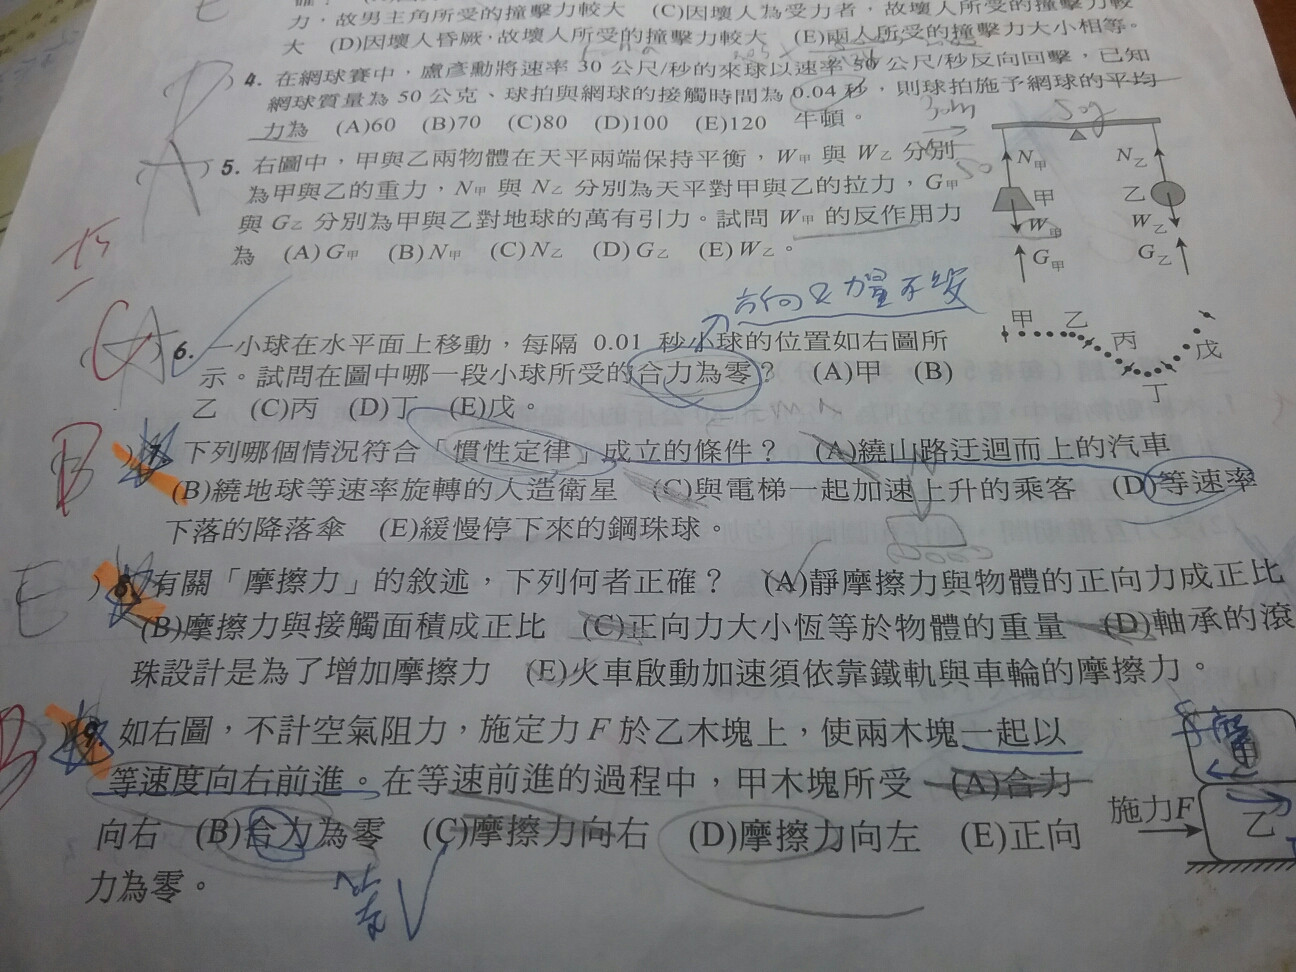 力，故男主角所受的撞擊力較大　(C)因壞人為受力者，故壞人所受的撞擊力較
大　(D)因壞人昏厥，故壞人所受的撞擊力較大　(E)兩人所受的撞擊力大小相等。
4. 在網球賽中，盧彥勳將速率 30 公尺/秒的來球以速率 50 公尺/秒反向回擊，已知
網球質量為 50 公克、球拍與網球的接觸時間為 0.04 秒，則球拍施予網球的平均
力為　(A)60　(B)70　(C)80　(D)100　(E)120　牛頓。
30m
50g
A
5. 右圖中，甲與乙兩物體在天平兩端保持平衡，W甲 與 W乙 分別
為甲與乙的重力，N甲 與 N乙 分別為天平對甲與乙的拉力，G甲
與 G乙 分別為甲與乙對地球的萬有引力。試問 W甲 的反作用力
為　(A) G甲　(B) N甲　(C) N乙　(D) G乙　(E) W乙。
N甲
N乙
甲
乙
W甲
W乙
G甲
G乙
方向又力量不變
6. 一小球在水平面上移動，每隔 0.01 秒小球的位置如右圖所
示。試問在圖中哪一段小球所受的合力為零？　(A)甲　(B)
乙　(C)丙　(D)丁　(E)戊。
甲
乙
丙
丁
戊
B
7. 下列哪個情況符合「慣性定律」成立的條件？　(A)繞山路迂迴而上的汽車
(B)繞地球等速率旋轉的人造衛星　(C)與電梯一起加速上升的乘客　(D)等速率
下落的降落傘　(E)緩慢停下來的鋼珠球。
E
8. 有關「摩擦力」的敘述，下列何者正確？　(A)靜摩擦力與物體的正向力成正比
(B)摩擦力與接觸面積成正比　(C)正向力大小恆等於物體的重量　(D)軸承的滾
珠設計是為了增加摩擦力　(E)火車啟動加速須依靠鐵軌與車輪的摩擦力。
B
9. 如右圖，不計空氣阻力，施定力 F 於乙木塊上，使兩木塊一起以
等速度向右前進。在等速前進的過程中，甲木塊所受　(A)合力
向右　(B)合力為零　(C)摩擦力向右　(D)摩擦力向左　(E)正向
力為零。
甲
施力F
乙